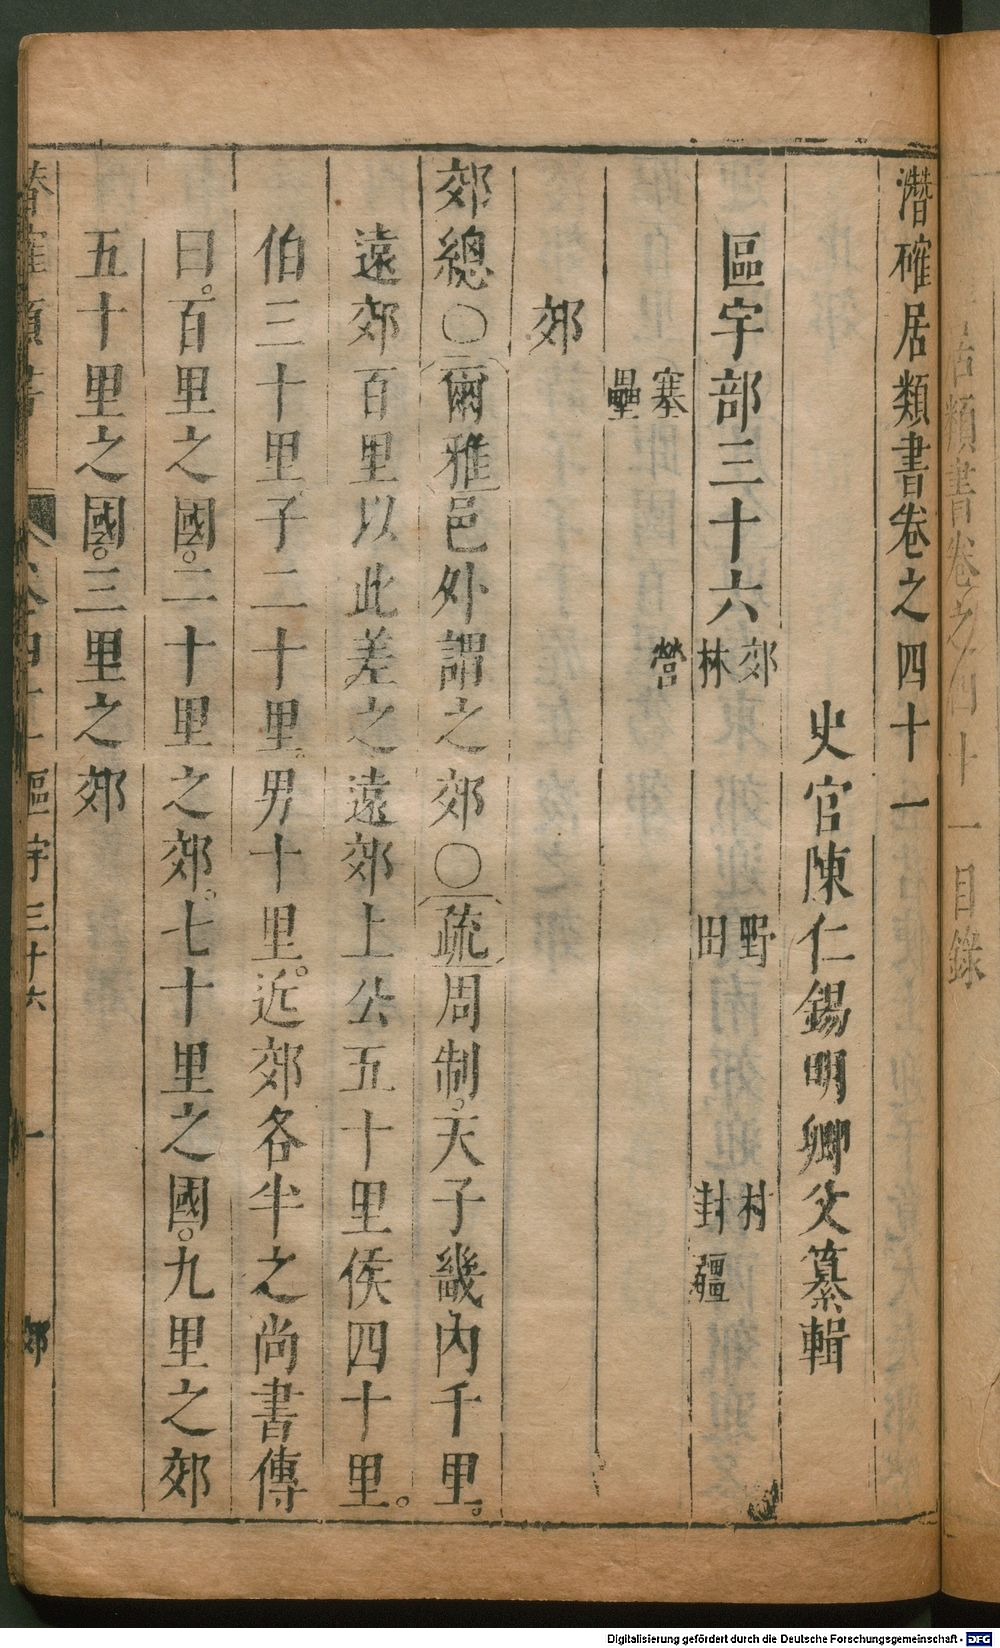 潛確居類書卷之四十一
史官陳仁錫明卿父纂輯
區宇部三十六
郊 野 村
林 田 封疆
塞 營
壘
郊
郊總○爾雅邑外謂之郊○疏周制。天子畿內千里。
遠郊百里以此差之遠郊上公五十里侯四十里。
伯三十里子二十里男十里。近郊各半之尚書傳
曰。百里之國。二十里之郊。七十里之國。九里之郊
五十里之國。三里之郊
區宇三十六 一 郊
類書卷之四十一目錄
Digitalisierung gefördert durch die Deutsche Forschungsgemeinschaft - DFG